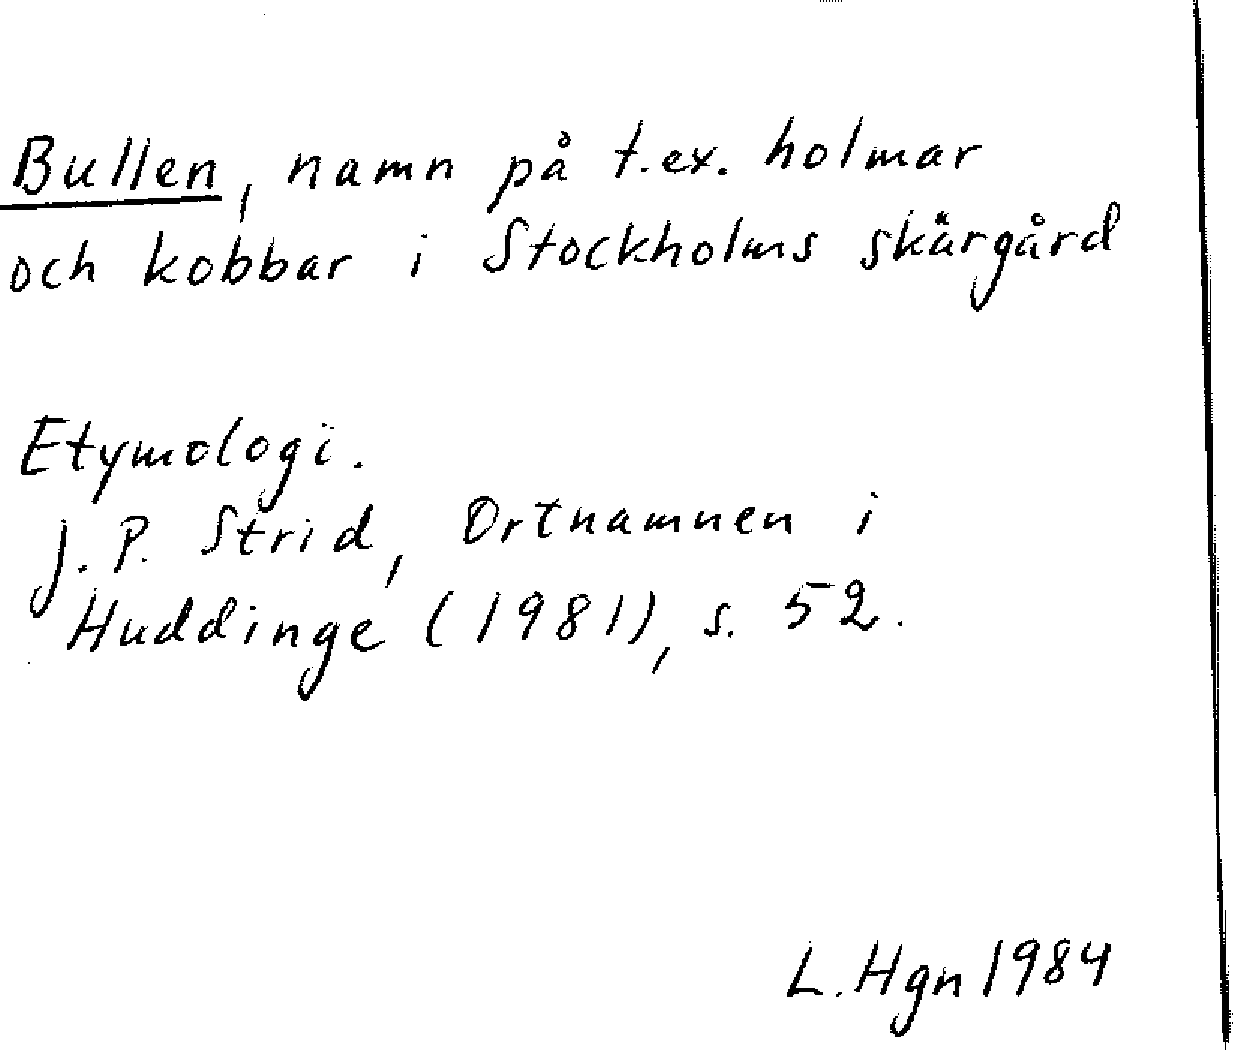 Bullen, namn på t.ex. holmar
och kobbar i Stockholms skärgård
Etymologi.
J.P. Strid, Ortnamnen i
Huddinge (1981), s. 52.
L. Hgn 1984